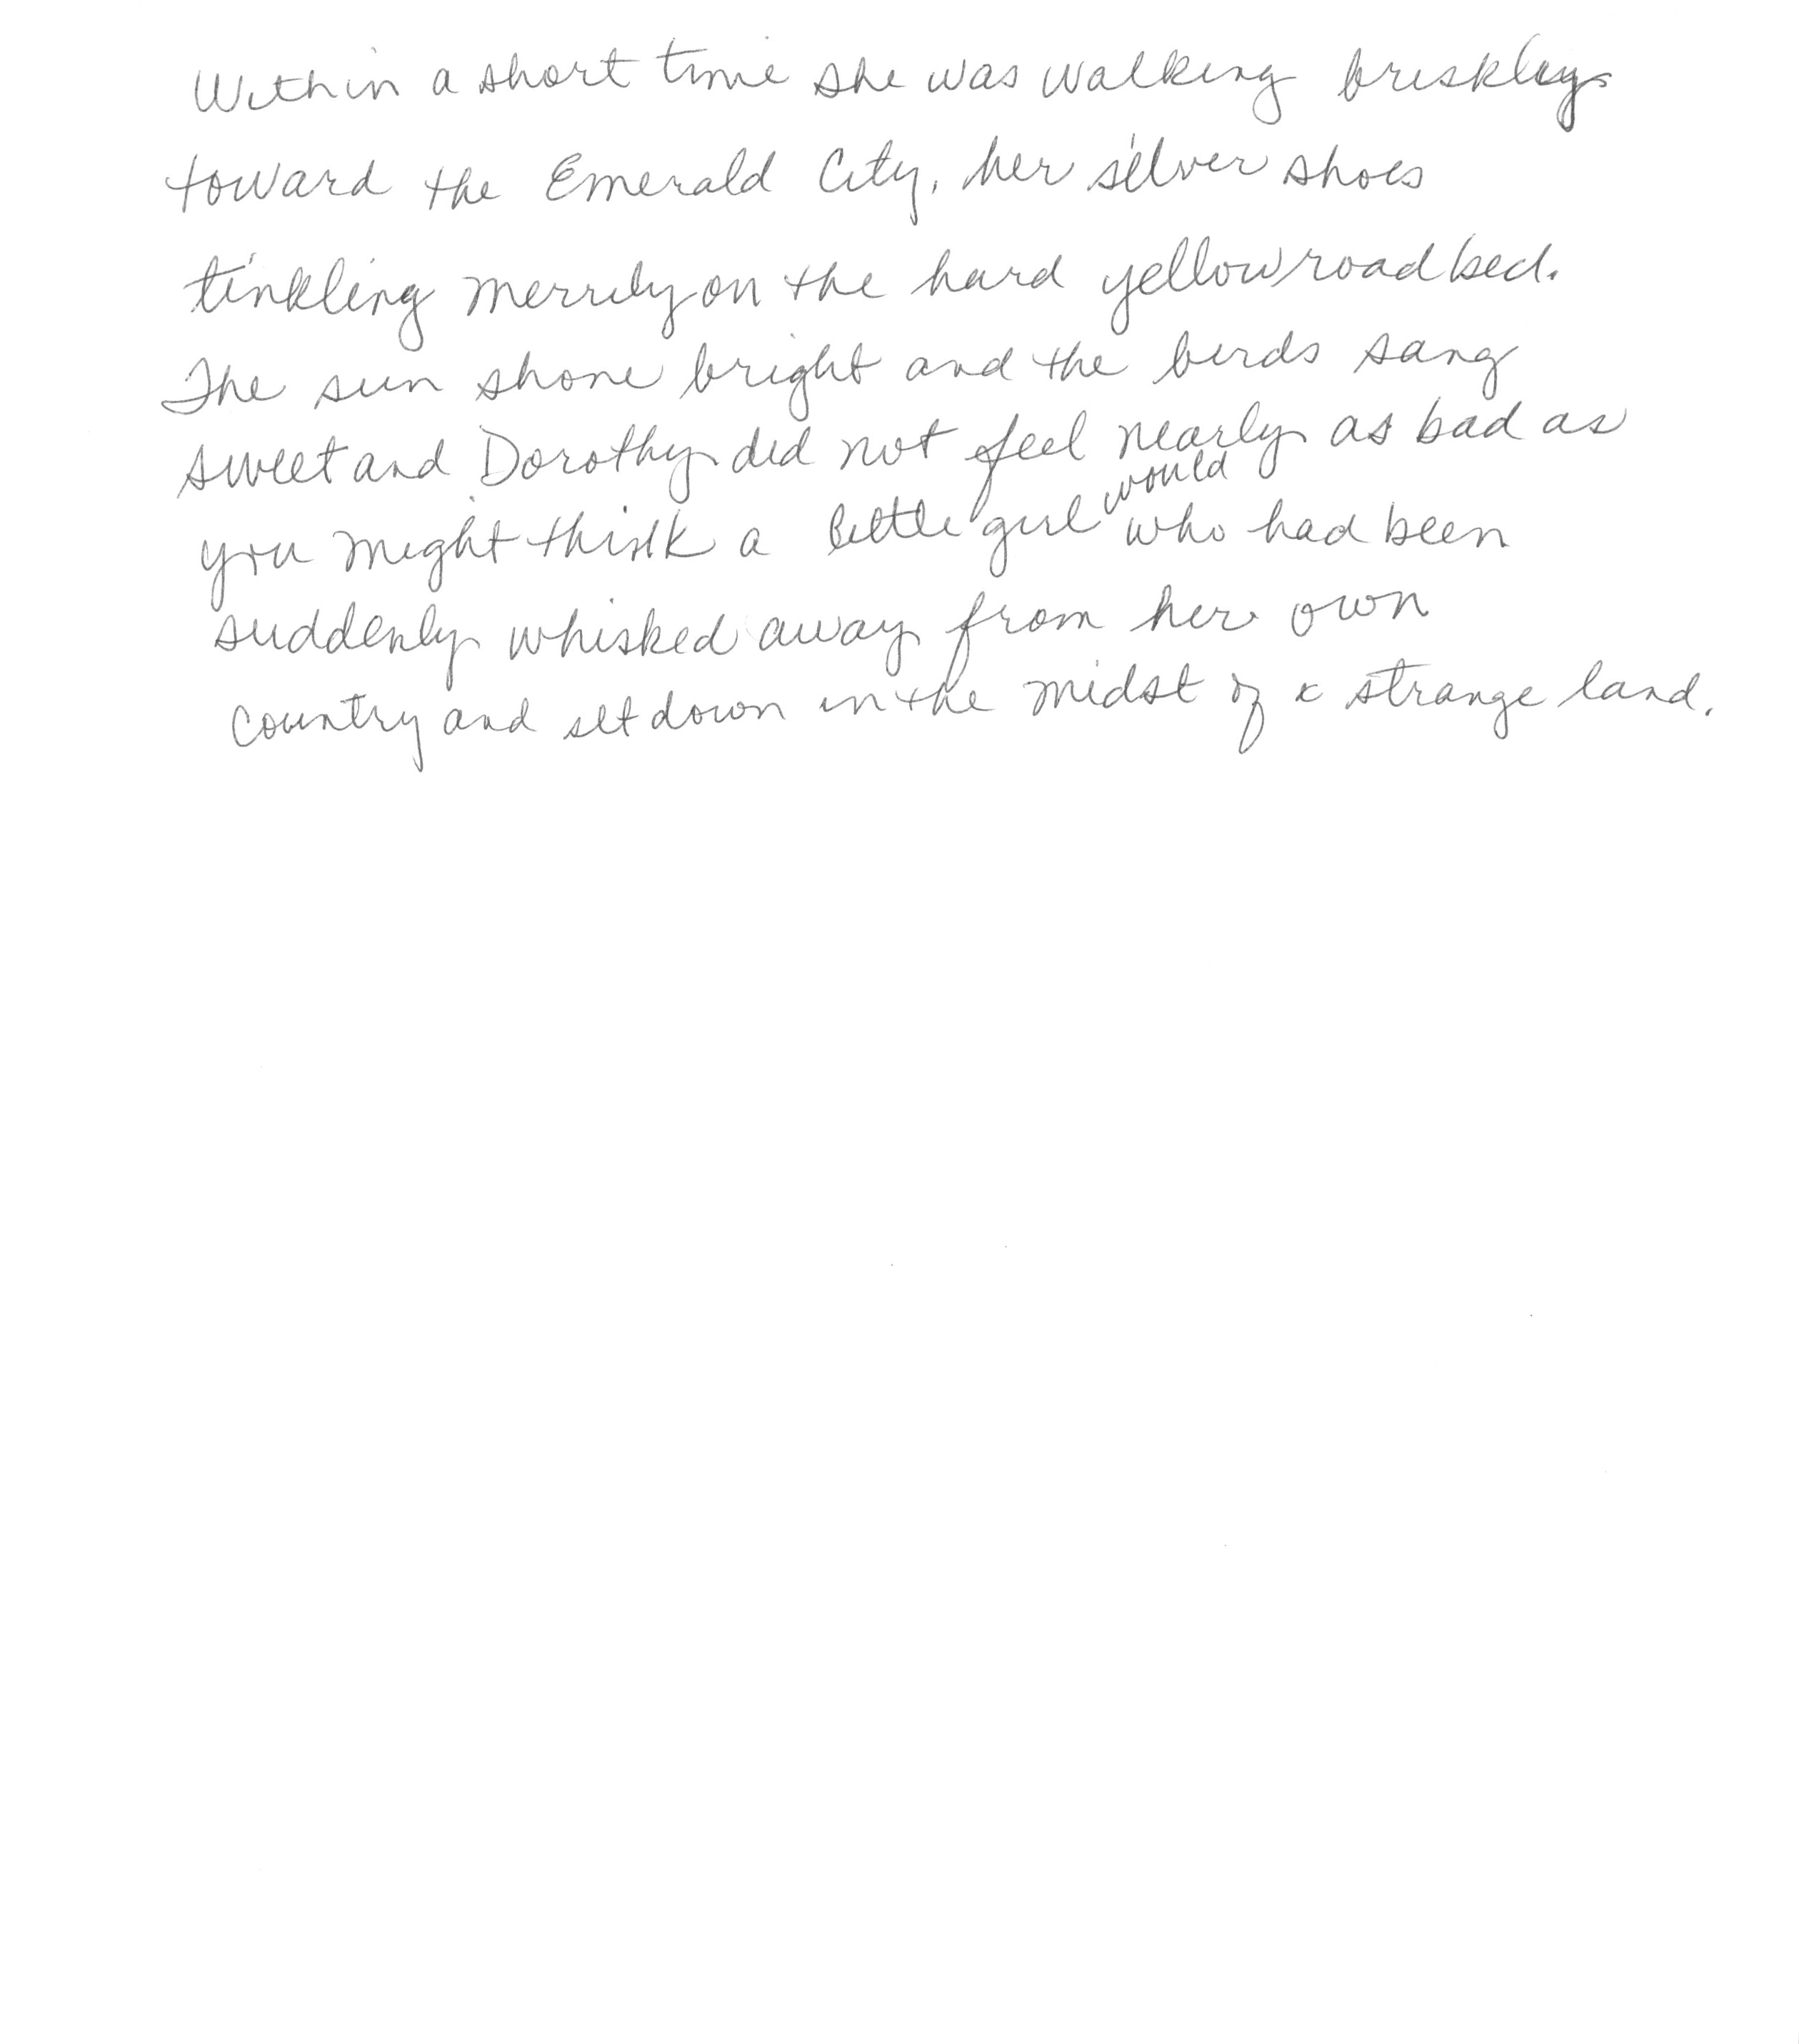 Within a short time she was walking briskley
toward the Emerald City, her silver shoes
tinkling merrily on the hard yellow road bed.
The sun shone bright and the birds sang
sweet and Dorothy did not feel nearly as bad as
you might think a little girl would who had been
suddenly whisked away from her own
country and set down in the midst of a strange land.